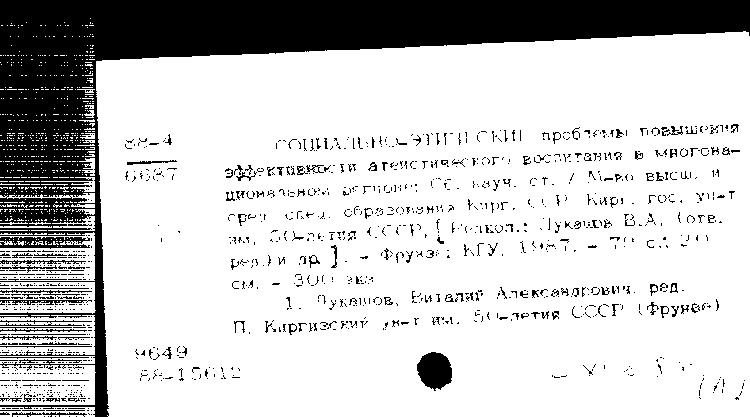 88-4
6687
СОЦИАЛЬНО-ЭТИЧЕСКИЕ проблемы повышения
эффективности атеистического воспитания в многона-
циональном регионе: Сб. науч. ст. / М-во высш. и
сред. спец. образования Кирг. ССР, Кирг. гос. ун-т
им. 50-летия СССР, [ Редкол.: Лукашов В.А. (отв.
ред.) и др. ]. - Фрунзе: КГУ, 1987. - 79 с.; 20
см. - 300 экз
1. Лукашов, Виталий Александрович, ред.
П. Киргизский ун-т им. 50-летия СССР (Фрунзе)
9649
88-15612